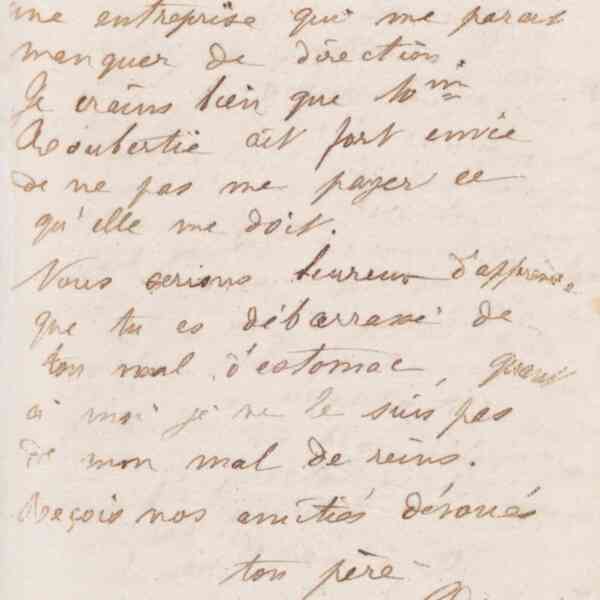 une entreprise qui me parait
manquer de direction.
Je crains bien que Mme
Roubertie ait fort envie
de ne pas me payer ce
qu'elle me doit.
Nous serions heureux d'apprendre
que tu es débarrassé de
ton mal d'estomac, quant
à moi je ne le suis pas
de mon mal de reins.
Reçois nos amitiés dévoués
ton père